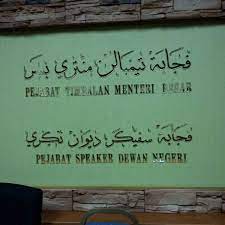 ڤجابة تيمبالن منتري بسر
PEJABAT TIMBALAN MENTERI BESAR
ڤجابة سڤيكر ديوان نݢري
PEJABAT SPEAKER DEWAN NEGERI